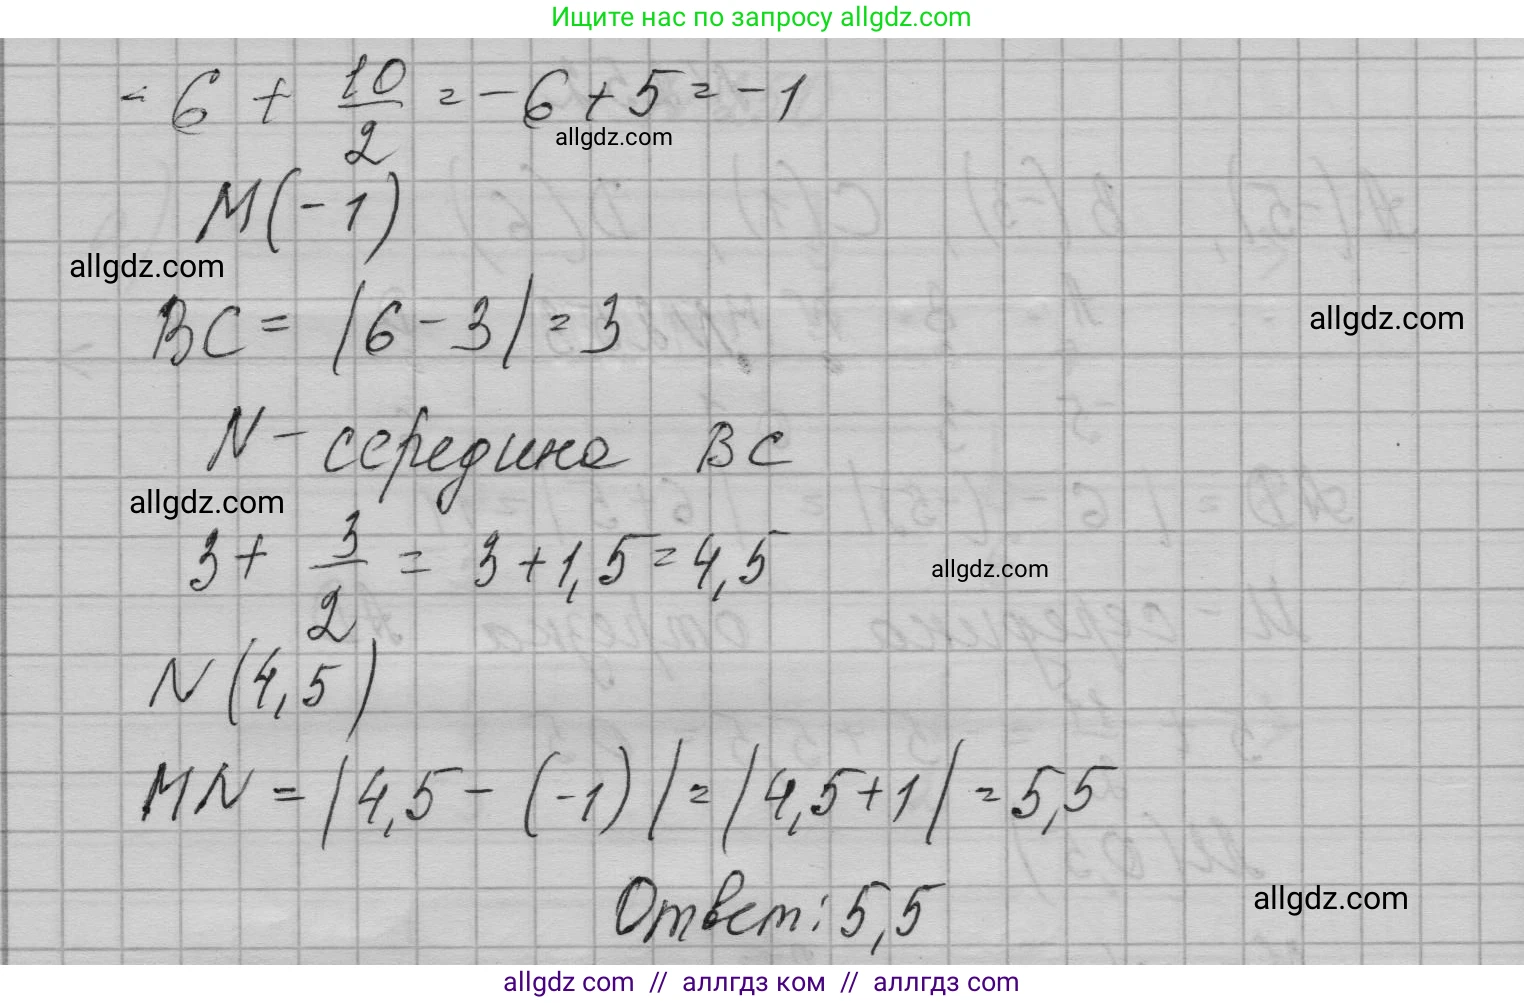 Ищите нас по запросу allgdz.com
- 6 + 10/2 = -6 + 5 = -1
allgdz.com
M(-1)
allgdz.com
BC = |6 - 3| = 3
allgdz.com
N - середина BC
allgdz.com
3 + 3/2 = 3 + 1,5 = 4,5
allgdz.com
N (4,5)
MN = |4,5 - (-1)| = |4,5 + 1| = 5,5
Ответ: 5,5
allgdz.com
allgdz com // аллгдз ком // аллгдз com